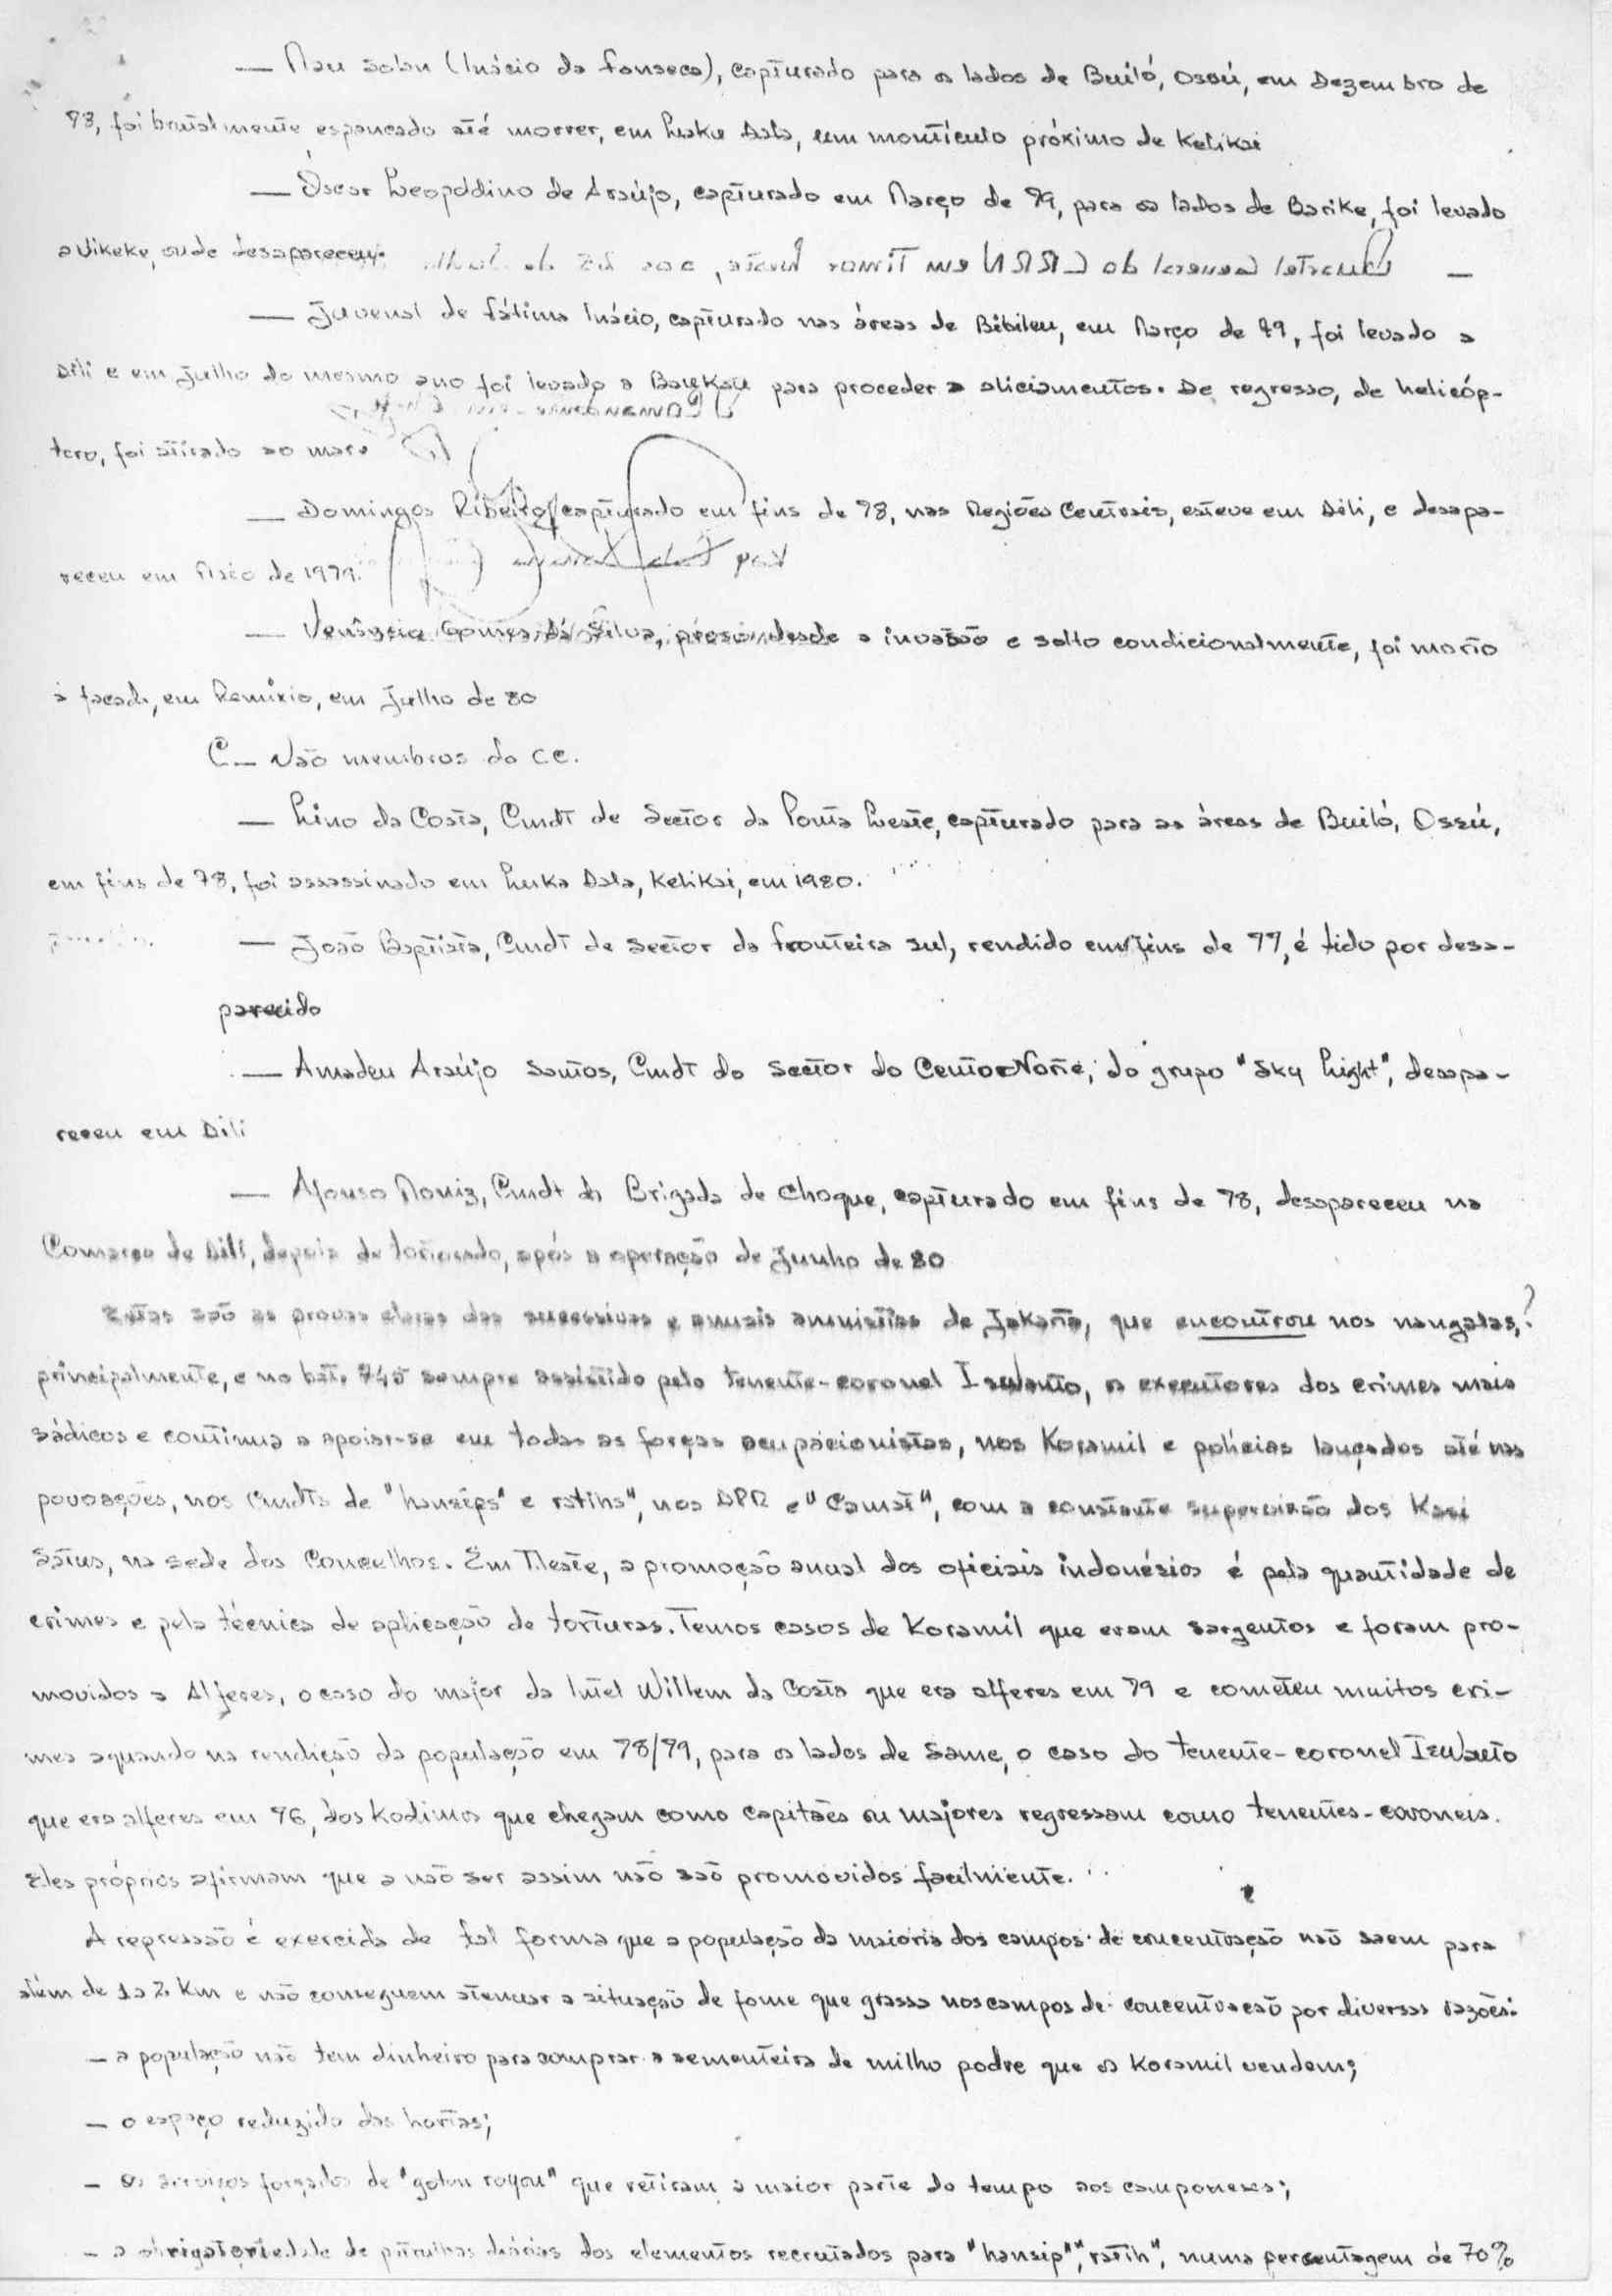 — Mau Solan (Inácio da Fonseca), capturado para os lados de Builó, Ossú, em Dezembro de
78, foi brutalmente espancado até morrer, em Luka Dala, um montículo próximo de Kelikai
— Óscar Leopoldino de Araújo, capturado em Março de 79, para os lados de Barike, foi levado
a Vikeke, onde desapareceu.
— Quartel General do CRRN em Timor Leste, aos 25 de Junho
— Juvenal de Fátima Inácio, capturado nas áreas de Bibileu, em Março de 79, foi levado a
Dili e em Julho do mesmo ano foi levado a Baukau para proceder a aliciamentos. De regresso, de helicóp-
tero, foi atirado ao mar.
— Domingos Ribeiro, capturado em fins de 78, nas Regiões Centrais, esteve em Dili, e desapa-
receu em Maio de 1979.
— Venâncio Gomes da Silva, preso desde a invasão e solto condicionalmente, foi morto
à facada, em Remixio, em Julho de 80
C — Não membros do CC.
— Lino da Costa, Cmdt de Sector da Ponta Leste, capturado para as áreas de Builó, Ossú,
em fins de 78, foi assassinado em Luka Dala, Kelikai, em 1980.
— João Baptista, Cmdt de Sector da Fronteira Sul, rendido em fins de 77, é tido por desa-
parecido
— Amadeu Araújo Santos, Cmdt do Sector do Centro Norte, do grupo "Sky Light", desapa-
receu em Dili
— Afonso Moniz, Cmdt da Brigada de Choque, capturado em fins de 78, desapareceu na
Comarca de Dili, depois de torturado, após a operação de Junho de 80
Estas são as provas claras das sucessivas e anuais amnistias de Jakarta, que encontrou nos nangalas, ?
principalmente, e no bat. 745 sempre assistido pelo tenente-coronel Iswanto, os executores dos crimes mais
sádicos e continua a apoiar-se em todas as forças ocupacionistas, nos Koramil e polícias lançados até nas
povoações, nos Cmdts de "hansips" e ratihs", nos DPR e "Camat", com a constante supervisão dos Kasi
Satus, na sede dos Concelhos. Em T.Leste, a promoção anual dos oficiais indonésios é pela quantidade de
crimes e pela técnica de aplicação de torturas. Temos casos de Koramil que eram sargentos e foram pro-
movidos a Alferes, o caso do major da Intel Willem da Costa que era alferes em 79 e cometeu muitos cri-
mes aquando na rendição da população em 78/79, para os lados de Same, o caso do tenente-coronel Iswanto
que era alferes em 76, dos Kodimos que chegam como capitães ou majores regressam como tenentes-coroneis.
Eles próprios afirmam que a não ser assim não são promovidos facilmente.
A repressão é exercida de tal forma que a população da maioria dos campos de concentração não saem para
além de 1 a 2 Km e não conseguem atenuar a situação de fome que grassa nos campos de concentração por diversas razões:
— a população não tem dinheiro para comprar a sementeira de milho podre que os Koramil vendem;
— o espaço reduzido das hortas;
— os serviços forçados de "goton royon" que retiram a maior parte do tempo aos camponeses;
— a obrigatoriedade de patrulhas diárias dos elementos recrutados para "hansip", "ratih", numa percentagem de 70%